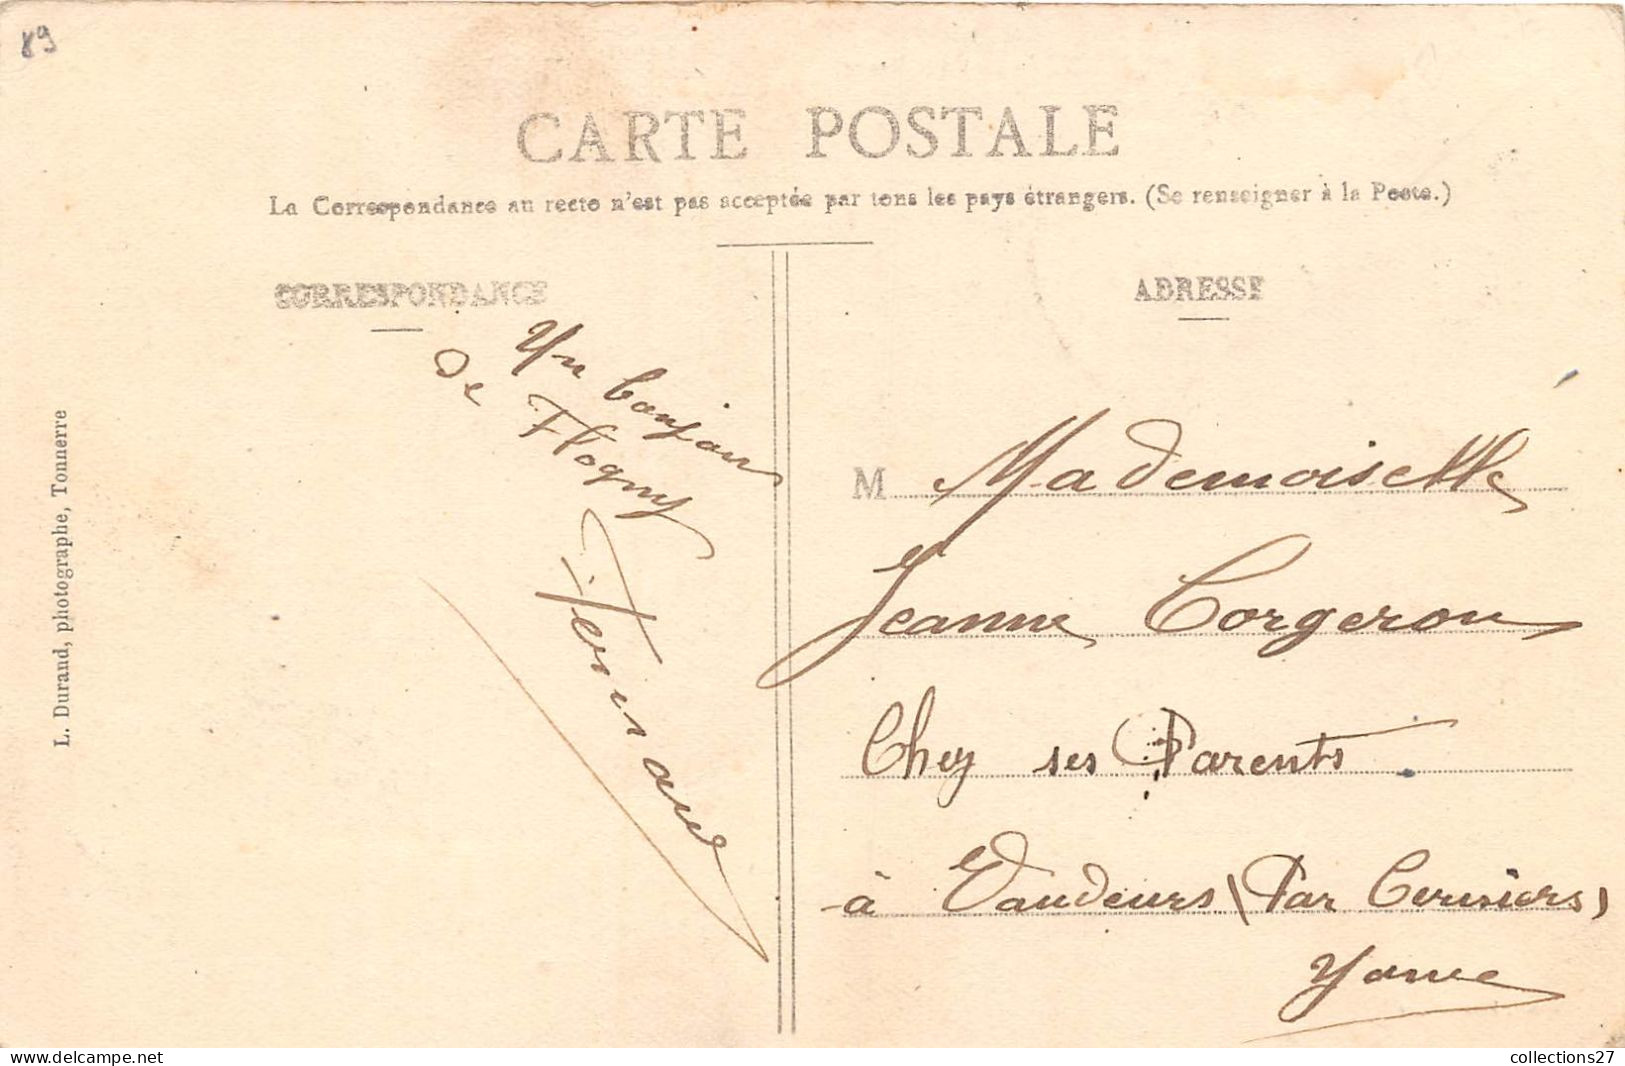 89
CARTE POSTALE
La Correspondance au recto n'est pas acceptée par tous les pays étrangers. (Se renseigner à la Poste.)
CORRESPONDANCE
Un bonjour
de Flogny
Fernand
L. Durand, photographe, Tonnerre
ADRESSE
M Mademoiselle
Jeanne Corgeron
Chez ses Parents
à Vaudeurs (Par Cerisiers)
Yonne
collections27